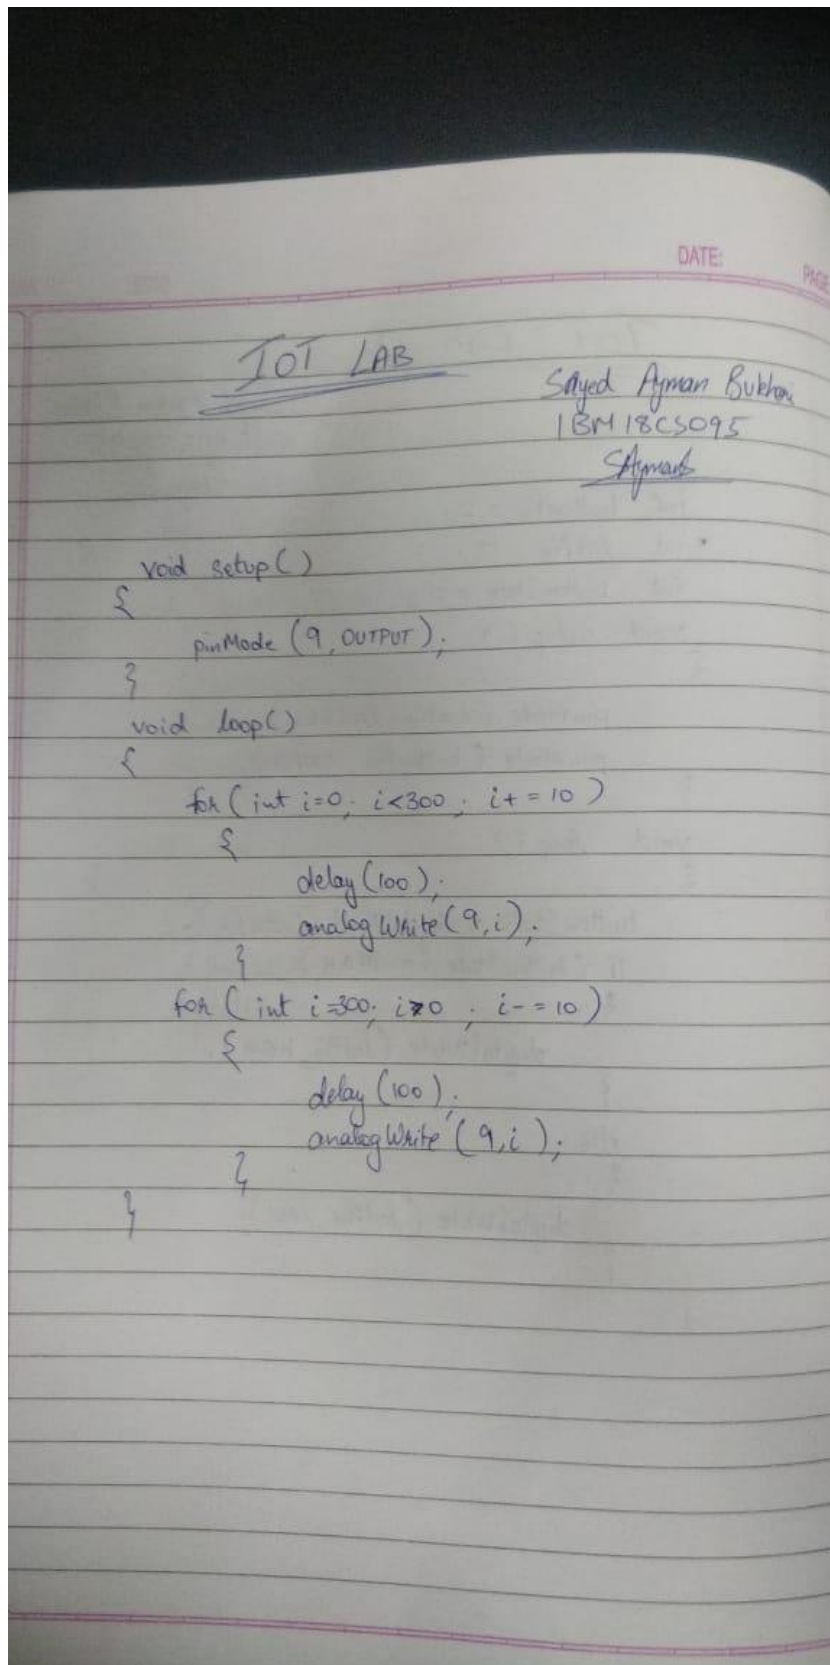 DATE:
PAGE
IOT LAB
Sayed Ayman Bukhari
1BM18CS095
SAyman
void setup()
{
pinMode (9, OUTPUT);
}
void loop()
{
for (int i=0; i<300; i+=10)
{
delay (100);
analogWrite (9,i);
}
for (int i=300; i>0; i-=10)
{
delay (100);
analogWrite (9,i);
}
}